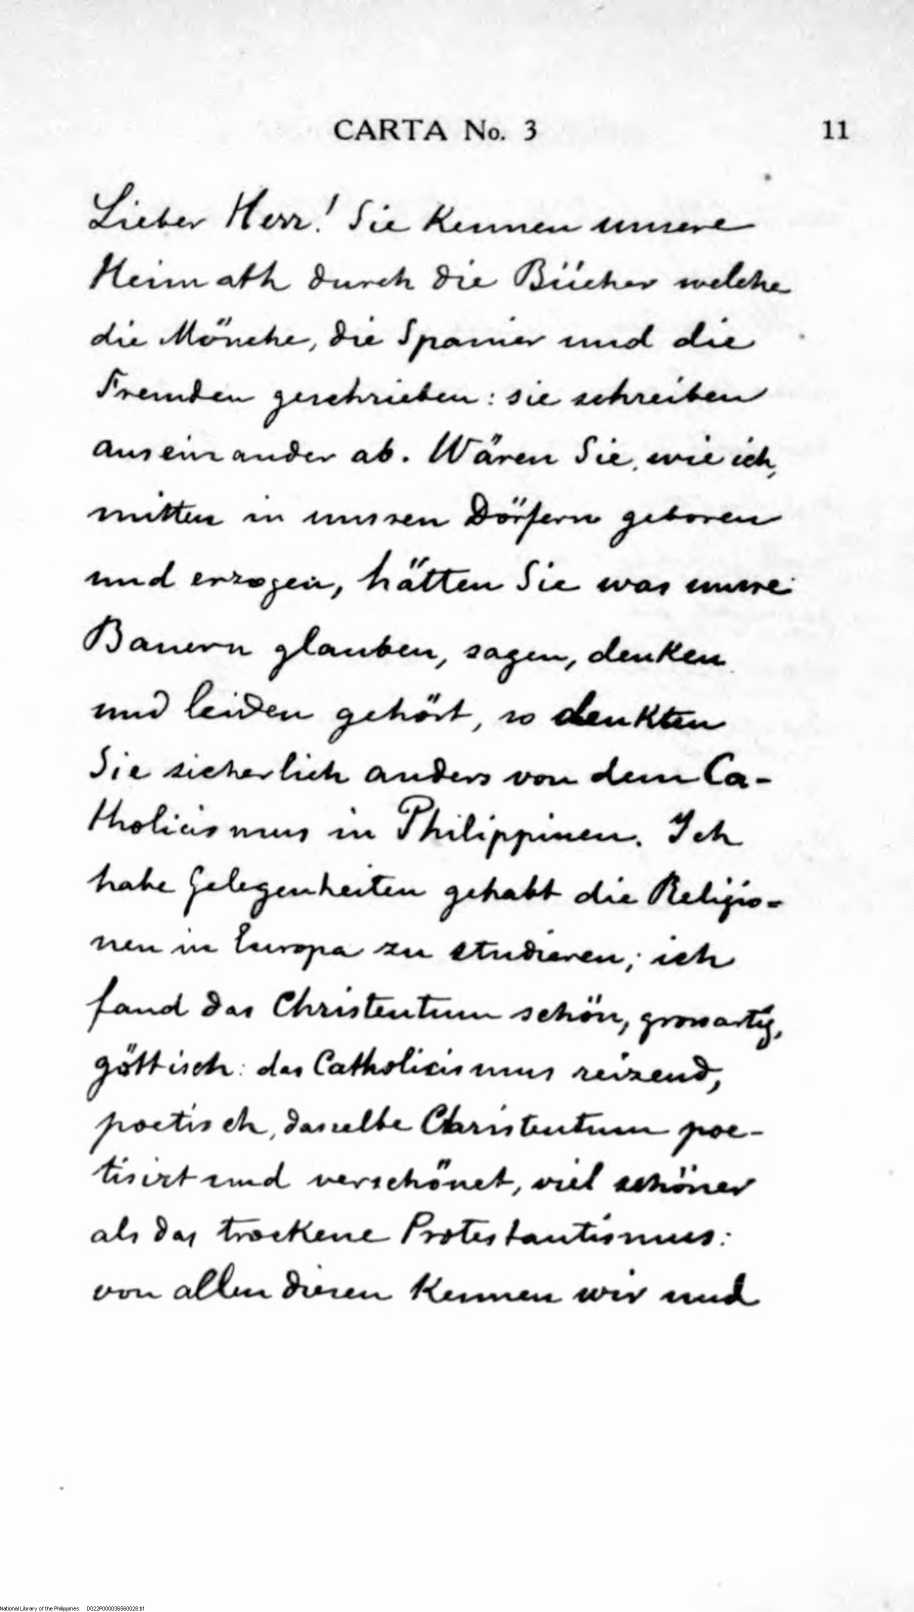 CARTA No. 3 11
Lieber Herr! Sie kennen unsere
Heimath durch die Bücher welche
die Mönche, die Spanier und die
Fremden geschrieben: sie schreiben
auseinander ab. Wären Sie, wie ich,
mitten in unsren Dörfern geboren
und erzogen, hätten Sie was unsre
Bauern glauben, sagen, denken
und leiden gehört, so denkten
Sie sicherlich anders von dem Ca-
tholicismus in Philippinen. Ich
habe Gelegenheiten gehabt die Religio-
nen in Europa zu studieren; ich
fand das Christentum schön, grossartig,
göttisch: das Catholicismus reizend,
poetisch, dasselbe Christentum poe-
tisirt und verschönet, viel schöner
als das trockene Protestantismus:
von allen diesen kennen wir und
National Library of the Philippines